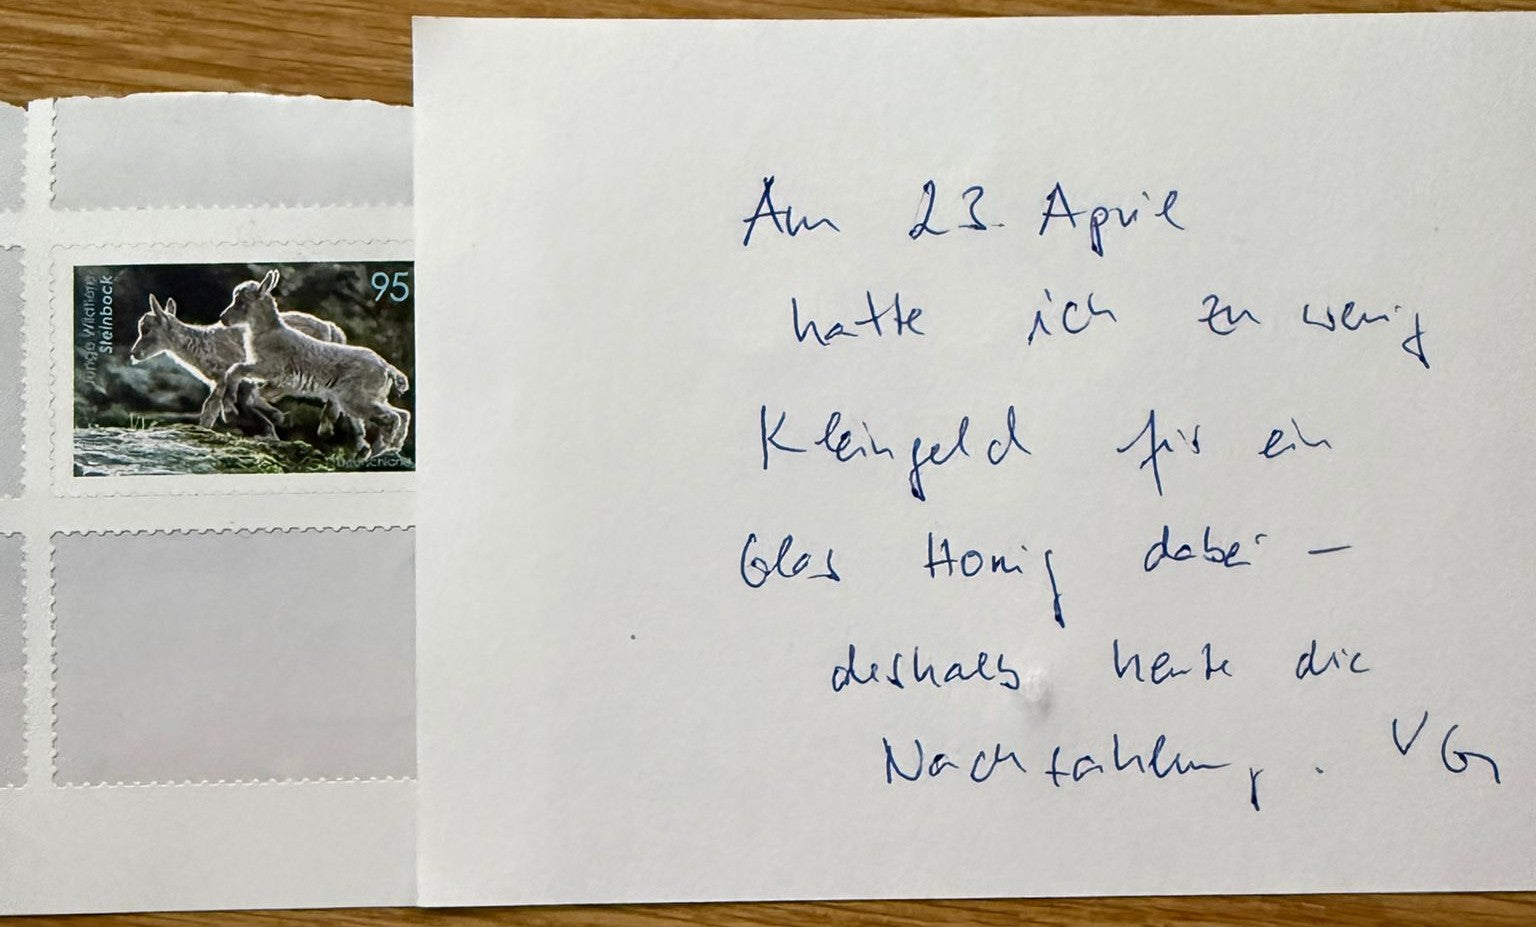 Junge Wildtiere
Steinbock
95
Deutschland
Am 23. April
hatte ich zu wenig
Kleingeld für ein
Glas Honig dabei –
deshalb heute die
Nachzahlung. VG